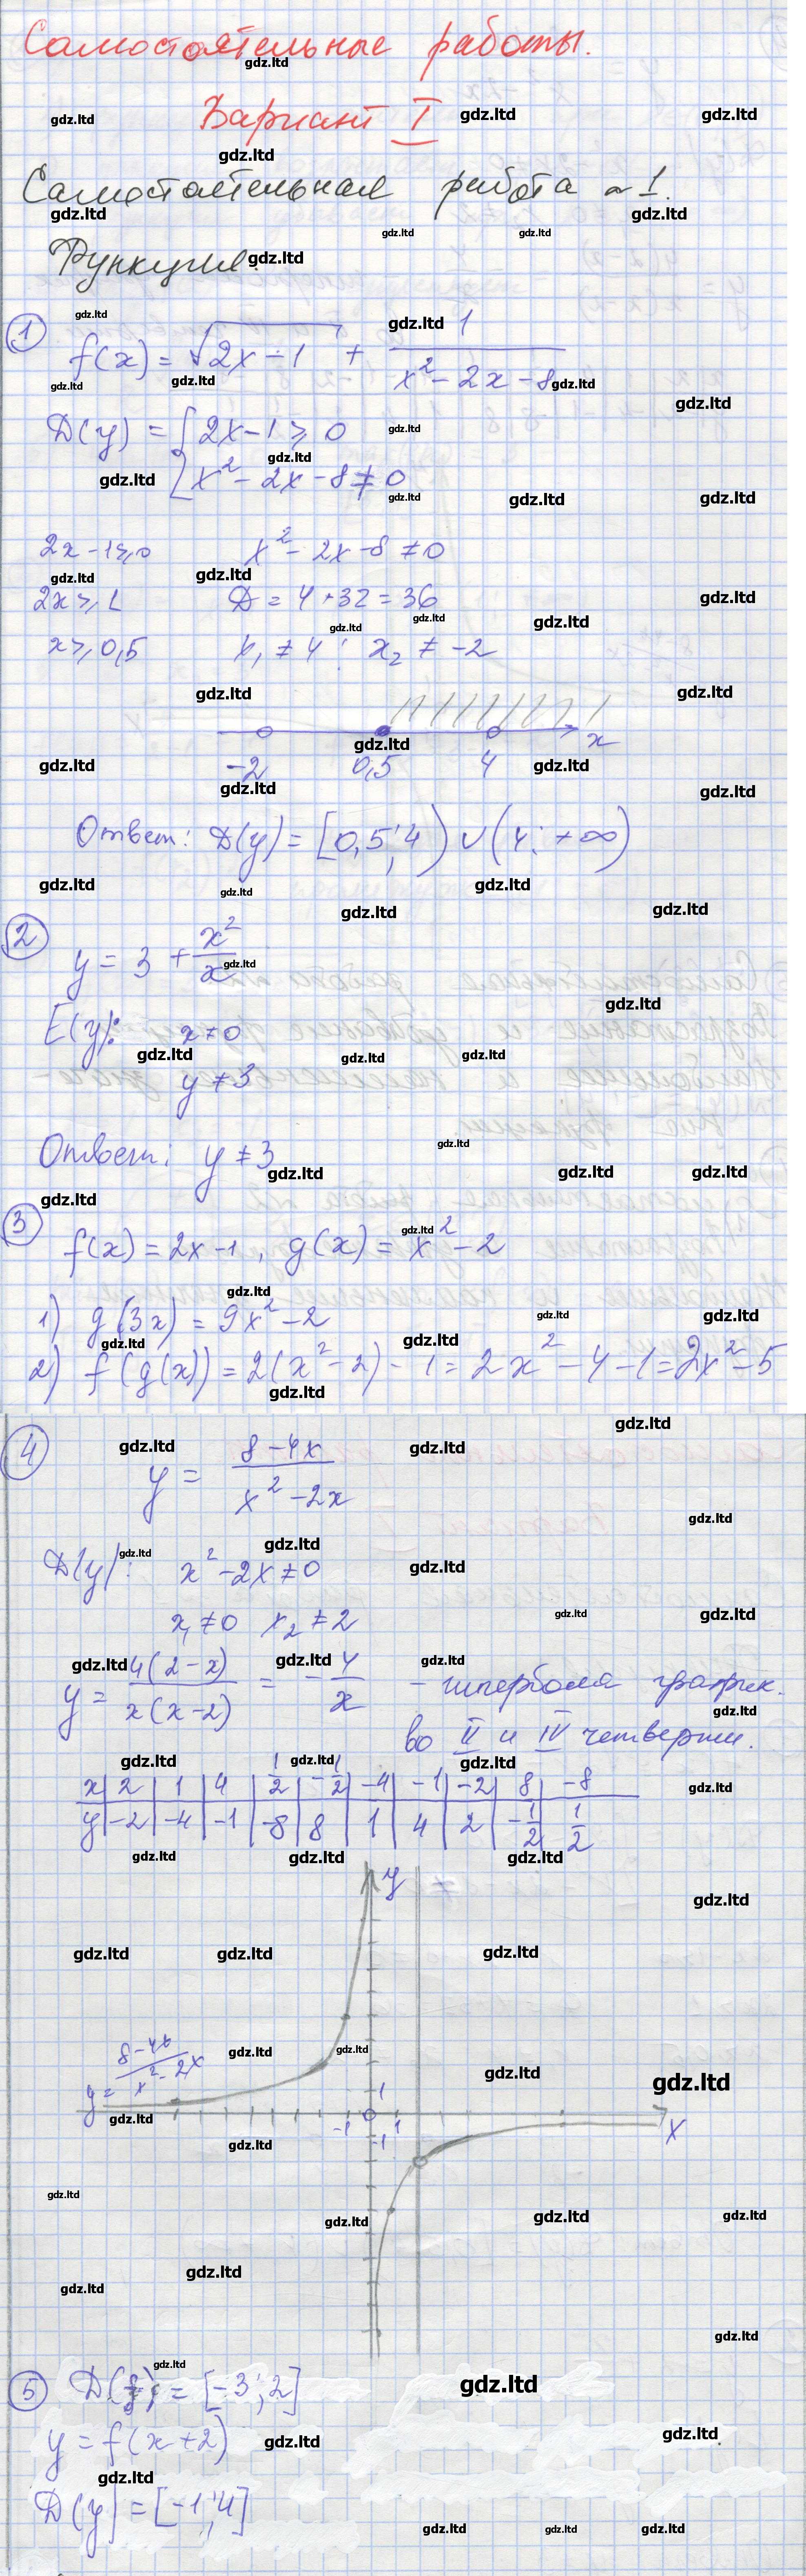 Самостоятельные работы.
Вариант I
Самостоятельная работа №1.
Функции.
① f(x) = √(2x-1) + 1/(x²-2x-8)
D(y) = { 2x-1 ⩾ 0
x²-2x-8 ≠ 0
2x-1⩾0 x²-2x-8 ≠ 0
2x ⩾ 1 D = 4+32 = 36
x ⩾ 0,5 x₁ ≠ 4; x₂ ≠ -2
-2 0,5 4 x
Ответ: D(y) = [0,5; 4) ∪ (4; +∞)
② y = 3 + x²/x
E(y): x ≠ 0
y ≠ 3
Ответ: y ≠ 3
③ f(x) = 2x-1, g(x) = x²-2
1) g(3x) = 9x²-2
2) f(g(x)) = 2(x²-2)-1 = 2x²-4-1 = 2x²-5
④ y = (8-4x)/(x²-2x)
D(y): x²-2x ≠ 0
x₁ ≠ 0 x₂ ≠ 2
y = 4(2-x)/(x(x-2)) = -4/x - гипербола график.
во II и IV четверти.
x | 2 | 1 | 4 | 1/2 | -1/2 | -4 | -1 | -2 | 8 | -8
y | -2 | -4 | -1 | -8 | 8 | 1 | 4 | 2 | -1/2 | 1/2
y
y = (8-4x)/(x²-2x)
1
-1 0 1 x
-1
⑤ D(f) = [-3; 2]
y = f(x+2)
D(y) = [-1; 4]
gdz.ltd